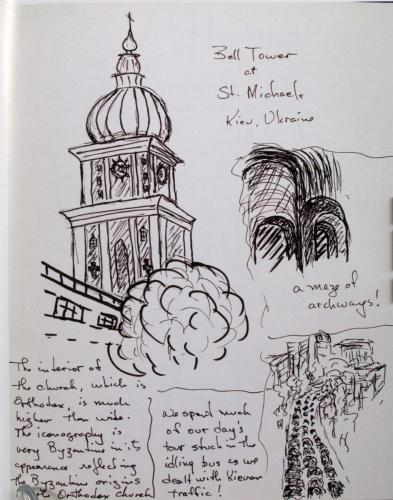 Bell Tower
at
St. Michaels
Kiev, Ukraine
a maze of
archways!
The interior of
the church, which is
Orthodox, is much
higher than wide.
The iconography is
very Byzantine in its
appearance reflecting
the Byzantine origins
the Orthodox church
we spent much
of our day's
tour stuck in the
idling bus as we
dealt with Kievan
traffic!